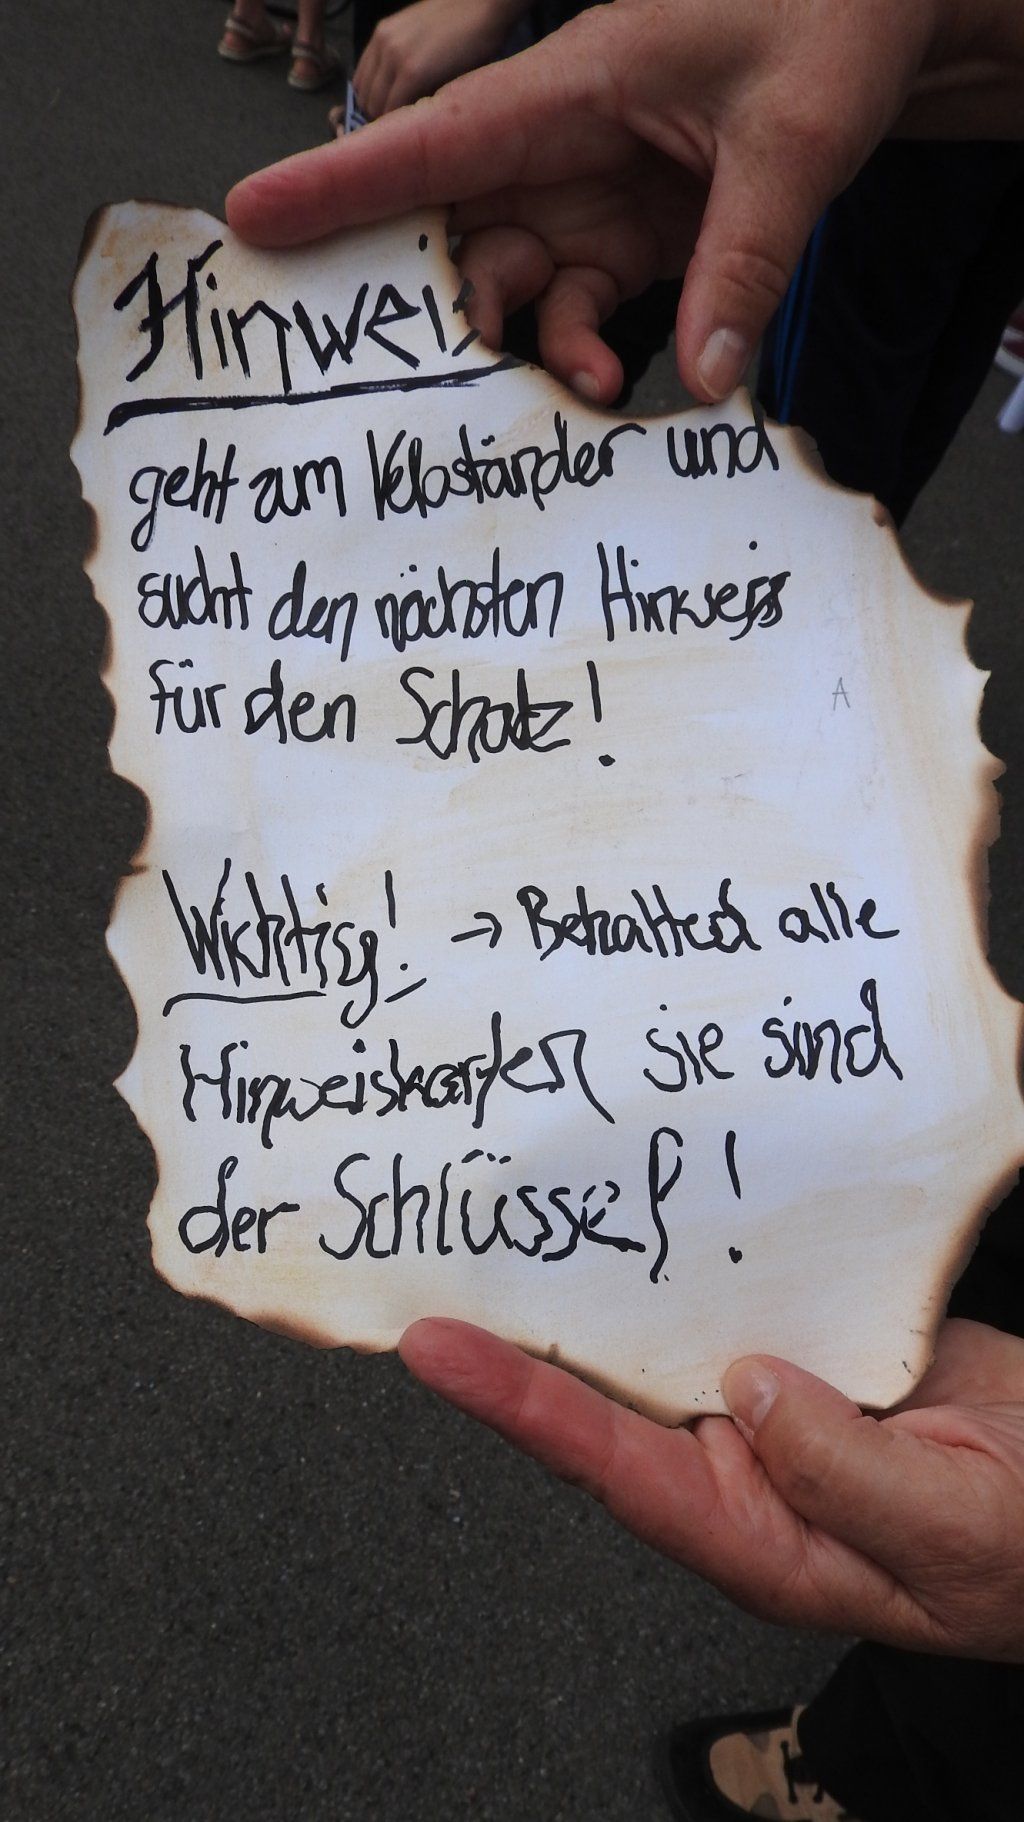 Hinweis
geht zum Veloständer und
sucht den nächsten Hinweis
für den Schatz!
A
Wichtig! → Behalted alle
Hinweiskarten sie sind
der Schlüssel!